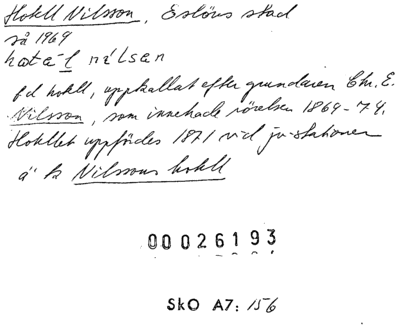 Hotell Nilsson, Eslövs stad
så 1969
hotäl nilsan
fd hotell, uppkallat efter grundaren Chr. E.
Nilsson, som innehade rörelsen 1869-74.
Hotellet uppfördes 1871 vid jv-stationen
Nilssons hotell
00026193
SkO A7: 156